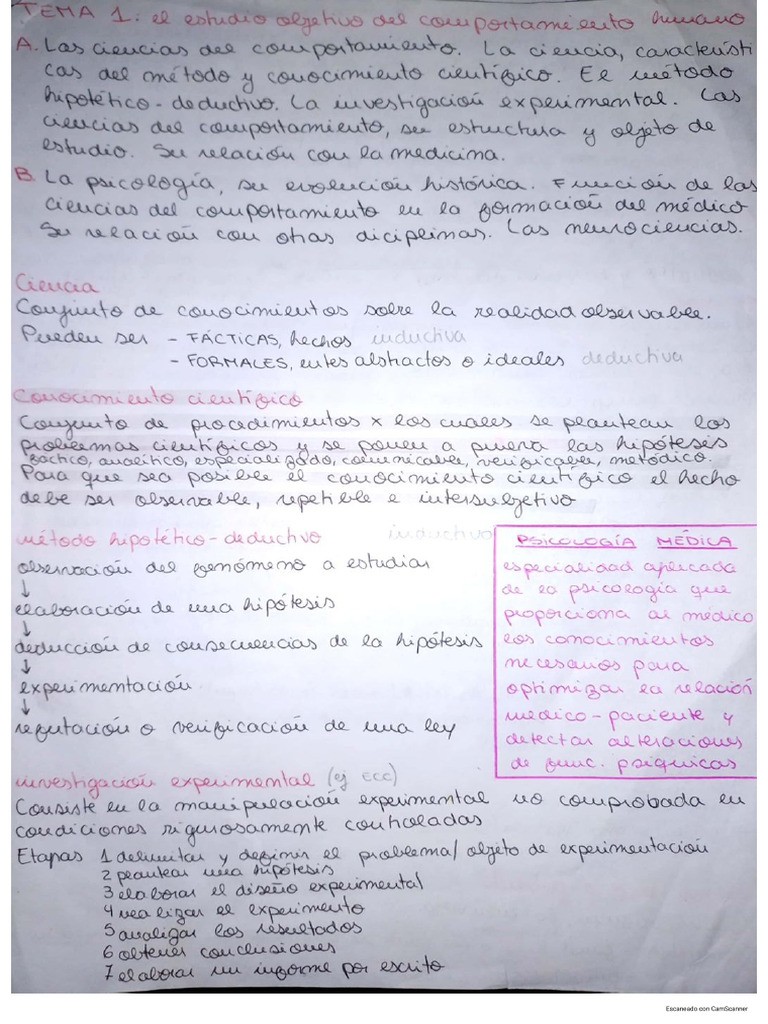 TEMA 1: el estudio objetivo del comportamiento humano
A. Las ciencias del comportamiento. La ciencia, característi
cas del método y conocimiento científico. El método
hipotético-deductivo. La investigación experimental. Las
ciencias del comportamiento, su estructura y objeto de
estudio. Su relación con la medicina.
B. La psicología, su evolución histórica. Función de las
ciencias del comportamiento en la formación del médico
Su relación con otras diciplinas. Las neurociencias.
Ciencia
Conjunto de conocimientos sobre la realidad observable.
Pueden ser - FÁCTICAS, hechos inductiva
- FORMALES, entes abstractos o ideales deductiva
Conocimiento científico
Conjunto de procedimientos x los cuales se plantean los
problemas científicos y se ponen a prueva las hipótesis
fáctico, analítico, especializado, comunicable, verificable, metódico.
Para que sea posible el conocimiento científico el hecho
debe ser observable, repetible e intersubjetivo
método hipotético-deductivo inductivo
observación del fenómeno a estudiar
↓
elaboración de una hipótesis
↓
deducción de consecuencias de la hipótesis
↓
experimentación
↓
refutación o verificación de una ley
PSICOLOGÍA MÉDICA
especialidad aplicada
de la psicología que
proporciona al médico
los conocimientos
necesarios para
optimizar la relación
médico-paciente y
detectar alteraciones
de func. psíquicas
investigación experimental (ej ECC)
Consiste en la manipulación experimental no comprobada en
condiciones rigurosamente controladas
Etapas 1 delimitar y definir el problema/objeto de experimentación
2 plantear una hipótesis
3 elaborar el diseño experimental
4 realizar el experimento
5 analizar los resultados
6 obtener conclusiones
7 elaborar un informe por escrito
Escaneado con CamScanner